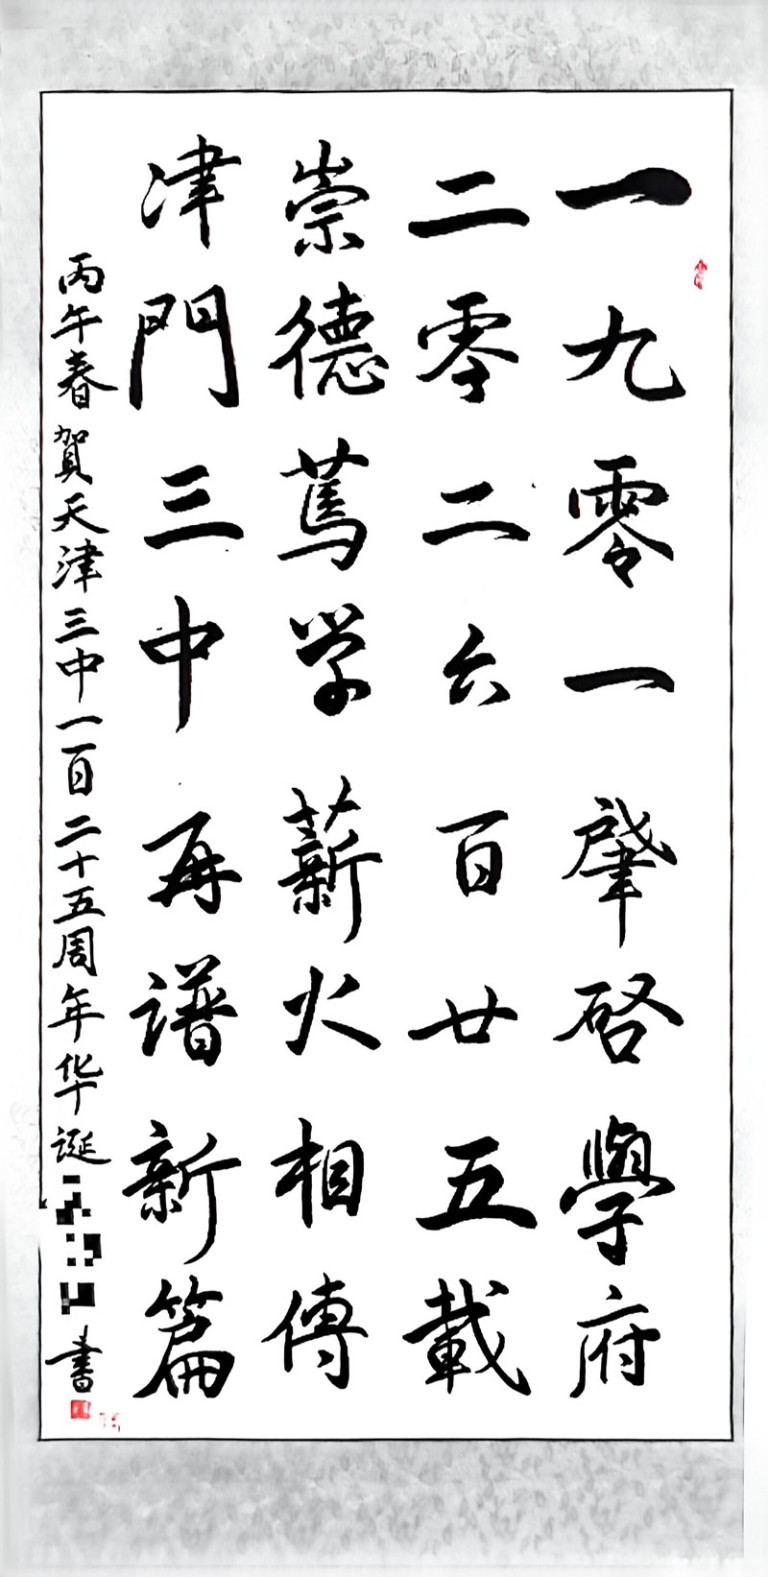 一九零一肇啓學府
二零二六百廿五載
崇德篤学薪火相傳
津門三中再譜新篇
丙午春賀天津三中一百二十五周年华誕 書